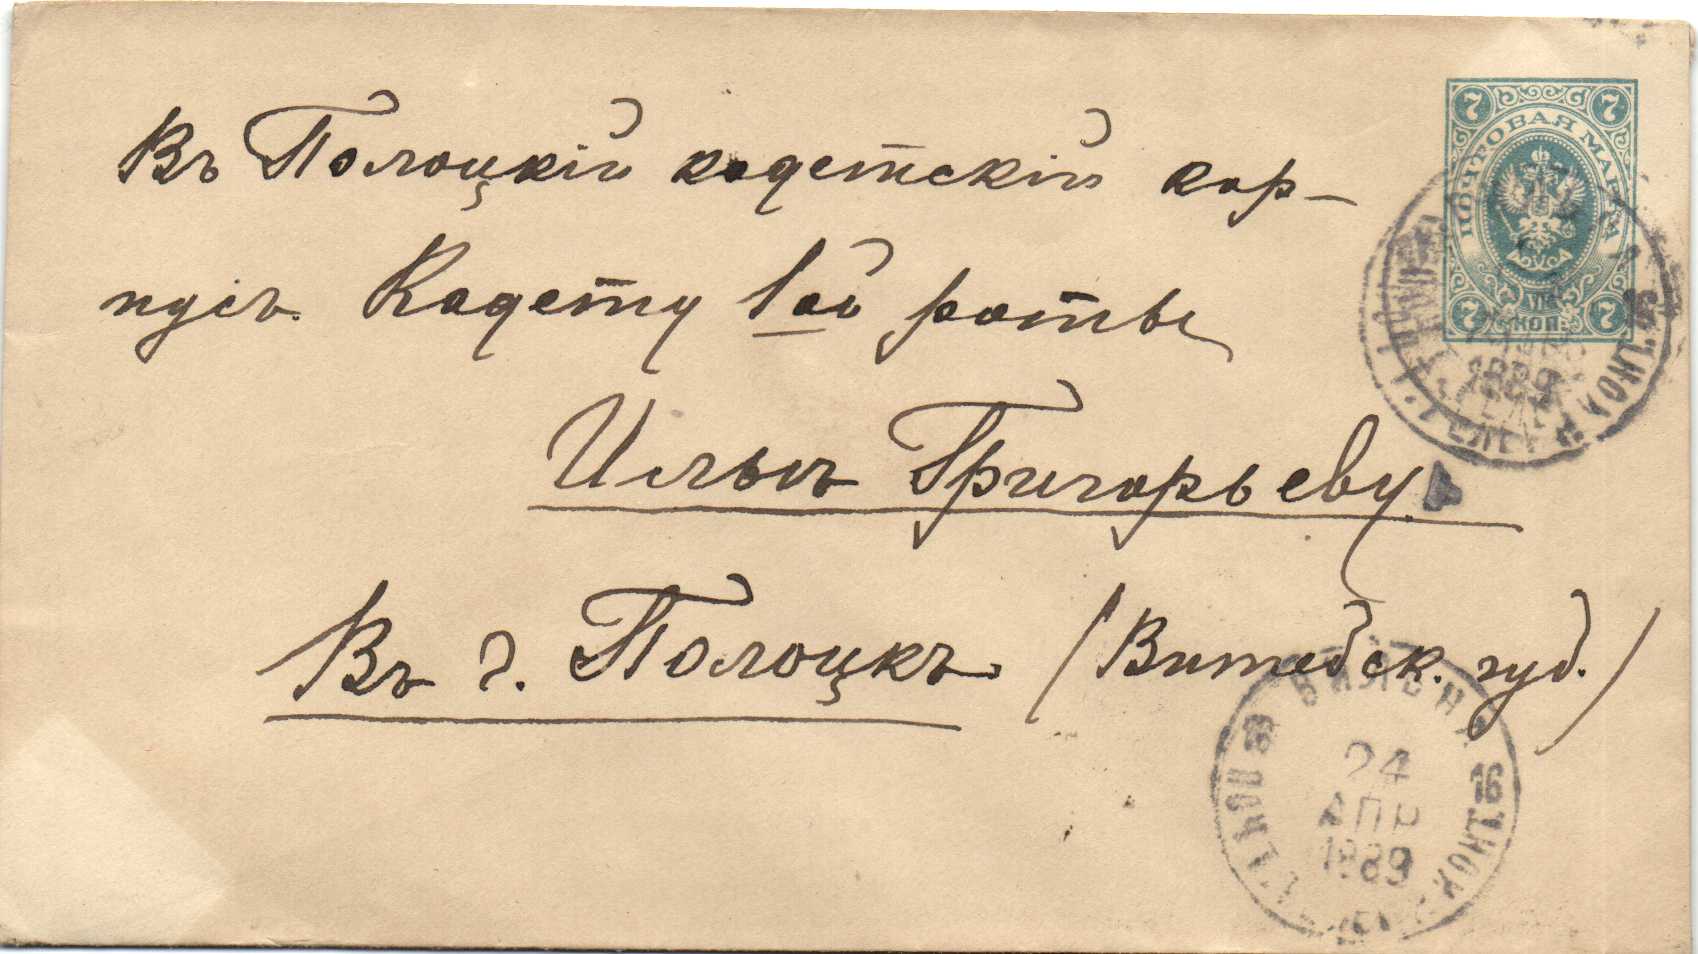 7 7
ПОЧТОВАЯ МАРКА
7 КОП. 7
Въ Полоцкій кадетскій кор-
пусъ. Кадету 1ой роты
Ильѣ Григорьеву
Въ г. Полоцкъ (Витебск. губ.)
16
1889
24
АПР
1889
16